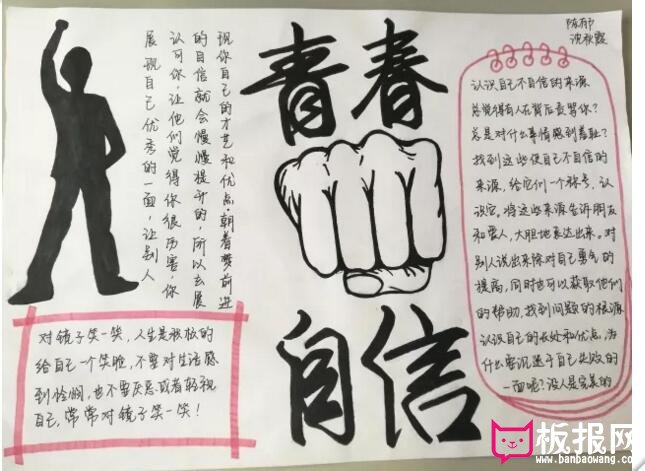 青春
自信
展现自己优秀的一面,让别人
认可你,让他们觉得你很厉害,你
的自信就会慢慢提升的,所以去展
现你自己的才艺和优点朝着梦前进
对镜子笑一笑,人生是松的
给自己一个笑脸,不要对生活感
到,也不要厌恶或者轻视
自己,常常对镜子笑一笑!
认识自己不自信的来源
总觉得有人在背后责骂你?
总是对什么事情感到羞耻?
找到这些使自己不自信的
来源,给它们一个称号,认
识它。将这些来源告诉朋友
和爱人,大胆地表达出来。对
别人说出来除对自己勇气的
提高,同时也可以获取他们
的帮助,找到问题的根源
认识自己的长处和优点,为
什么要沉迷于自己失败的
一面呢?没人是完美的
板报网
www.banbaowang.com